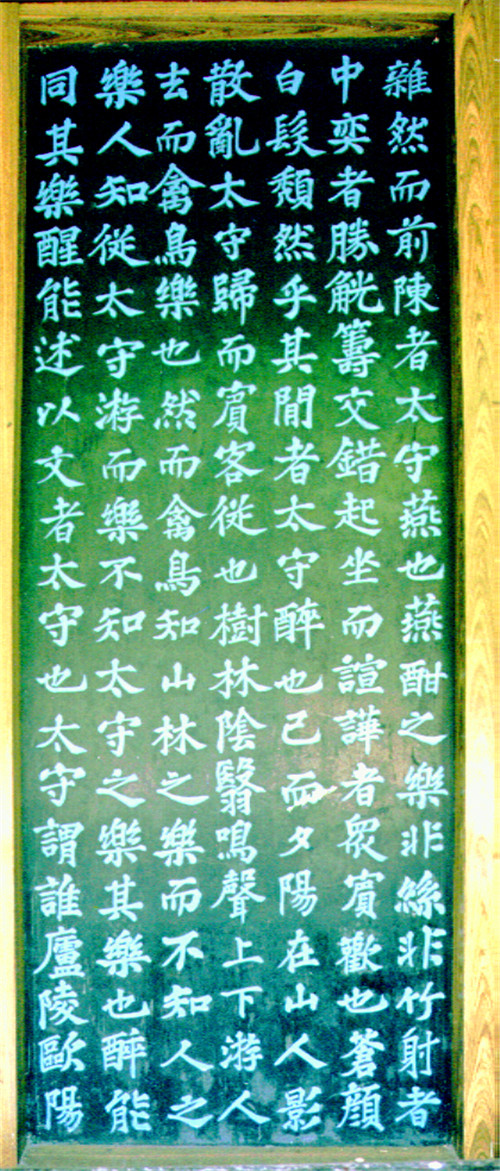 雜然而前陳者太守燕也燕酣之樂非絲非竹射者
中奕者勝觥籌交錯起坐而諠譁者眾賓歡也蒼顔
白髮頹然乎其間者太守醉也已而夕陽在山人影
散亂太守歸而賓客從也樹林陰翳鳴聲上下游人
去而禽鳥樂也然而禽鳥知山林之樂而不知人之
樂人知從太守游而樂不知太守之樂其樂也醉能
同其樂醒能述以文者太守也太守謂誰廬陵歐陽